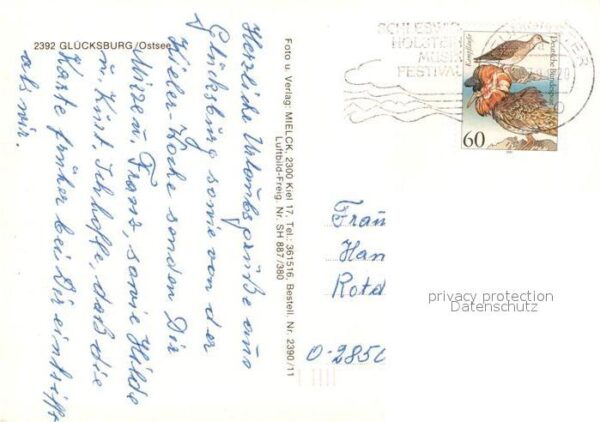 2392 GLÜCKSBURG/Ostsee
Herzliche Urlaubsgrüße aus
Glücksburg sowie von der
Kieler-Woche senden Dir
Mizzi u. Franz, sowie Hilde
u. Kurt. Ich hoffe, daß die
Karte früher bei Dir eintrifft
als wir.
Foto u. Verlag: MIELCK, 2300 Kiel 17, Tel.: 361516, Bestell. Nr. 2390/11
Luftbild-Freig. Nr. SH 887/380
SCHLESWIG
HOLSTEIN
MUSIK
FESTIVAL
Deutsche Bundespost
60
Frau
Han
Roted
O-2850
privacy protection
Datenschutz